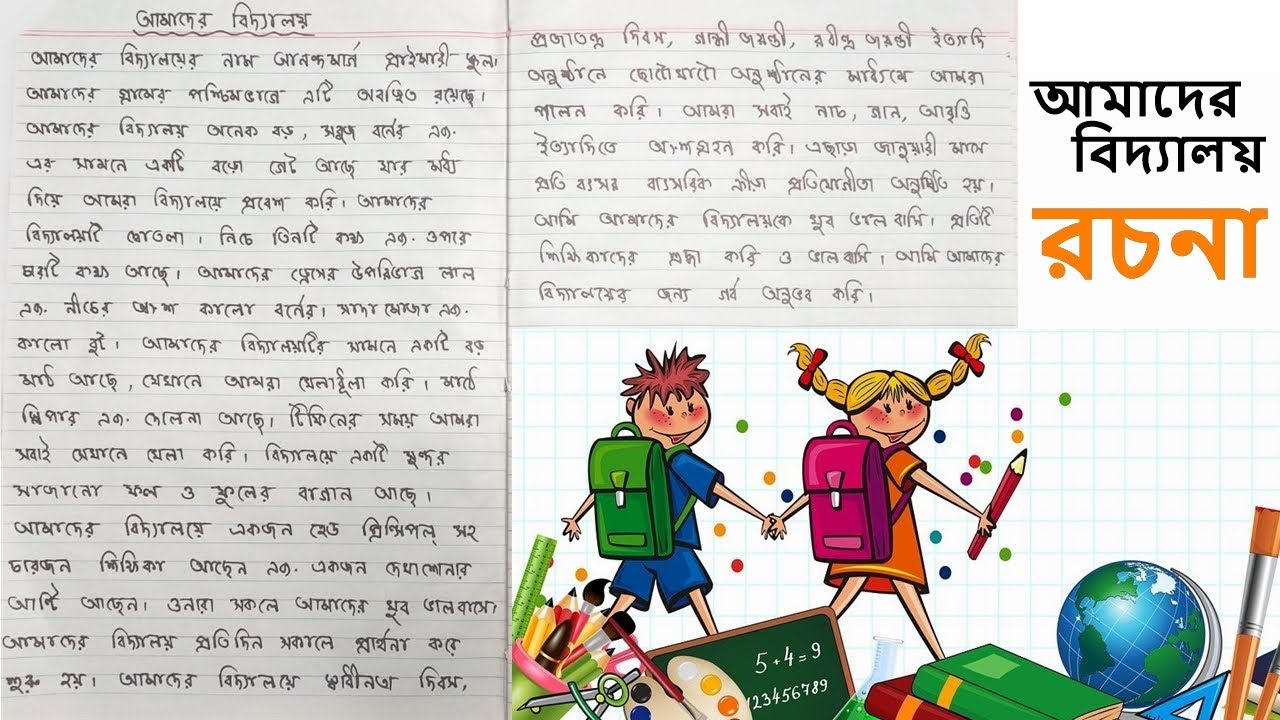 আমাদের বিদ্যালয়
আমাদের বিদ্যালয়ের নাম আনন্দমার্গ প্রাইমারী স্কুল।
আমাদের গ্রামের পশ্চিমভাগে এটি অবস্থিত রয়েছে।
আমাদের বিদ্যালয় অনেক বড়, সবুজ বর্নের এবং
এর সামনে একটি বড়ো গেট আছে যার মধ্য
দিয়ে আমরা বিদ্যালয়ে প্রবেশ করি। আমাদের
বিদ্যালয়টি দোতলা। নিচে তিনটি কক্ষ এবং উপরে
চারটি কক্ষ আছে। আমাদের ড্রেসের উপরিভাগ লাল
এবং নীচের অংশ কালো বর্নের। সাদা মোজা এবং
কালো বুট। আমাদের বিদ্যালয়টির সামনে একটি বড়
মাঠ আছে, যেখানে আমরা খেলাধূলা করি। মাঠে
স্লিপার এবং দোলনা আছে। টিফিনের সময় আমরা
সবাই সেখানে খেলা করি। বিদ্যালয়ে একটি সুন্দর
সাজানো ফল ও ফুলের বাগান আছে।
আমাদের বিদ্যালয়ে একজন হেড প্রিন্সিপল্ সহ
চারজন শিক্ষিকা আছেন এবং একজন দেখাশোনার
আন্টি আছেন। ওনারা সকলে আমাদের খুব ভালবাসে।
আমাদের বিদ্যালয় প্রতিদিন সকালে প্রার্থনা করে
শুরু হয়। আমাদের বিদ্যালয়ে স্বাধীনতা দিবস,
প্রজাতন্ত্র দিবস, গান্ধী জয়ন্তী, রবীন্দ্র জয়ন্তী ইত্যাদি
অনুষ্ঠানে ছোটোখাটো অনুষ্ঠানের মাধ্যমে আমরা
পালন করি। আমরা সবাই নাচ, গান, আবৃত্তি
ইত্যাদিতে অংশগ্রহন করি। এছাড়া জানুয়ারী মাসে
প্রতি বৎসর বাৎসরিক ক্রীড়া প্রতিযোগীতা অনুষ্ঠিত হয়।
আমি আমাদের বিদ্যালয়কে খুব ভালবাসি। প্রতিটি
শিক্ষিকাদের শ্রদ্ধা করি ও ভালবাসি। আমি আমাদের
বিদ্যালয়ের জন্য গর্ব অনুভব করি।
আমাদের
বিদ্যালয়
রচনা
5+4=9
123456789